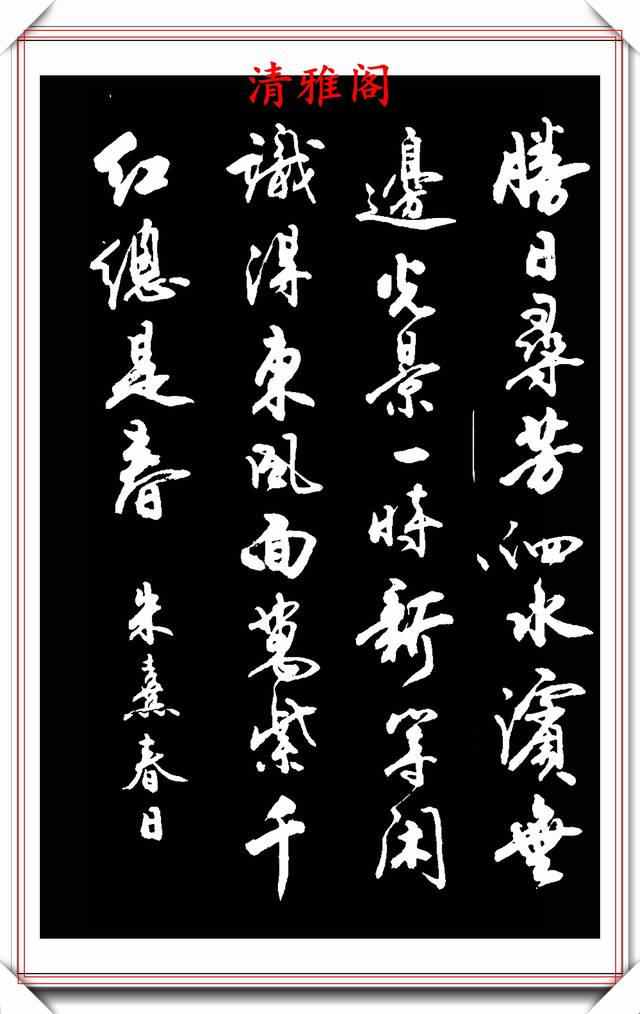 清雅阁
勝日尋芳泗水濱無
邊光景一時新等闲
識得東風面萬紫千
红總是春
朱熹春日